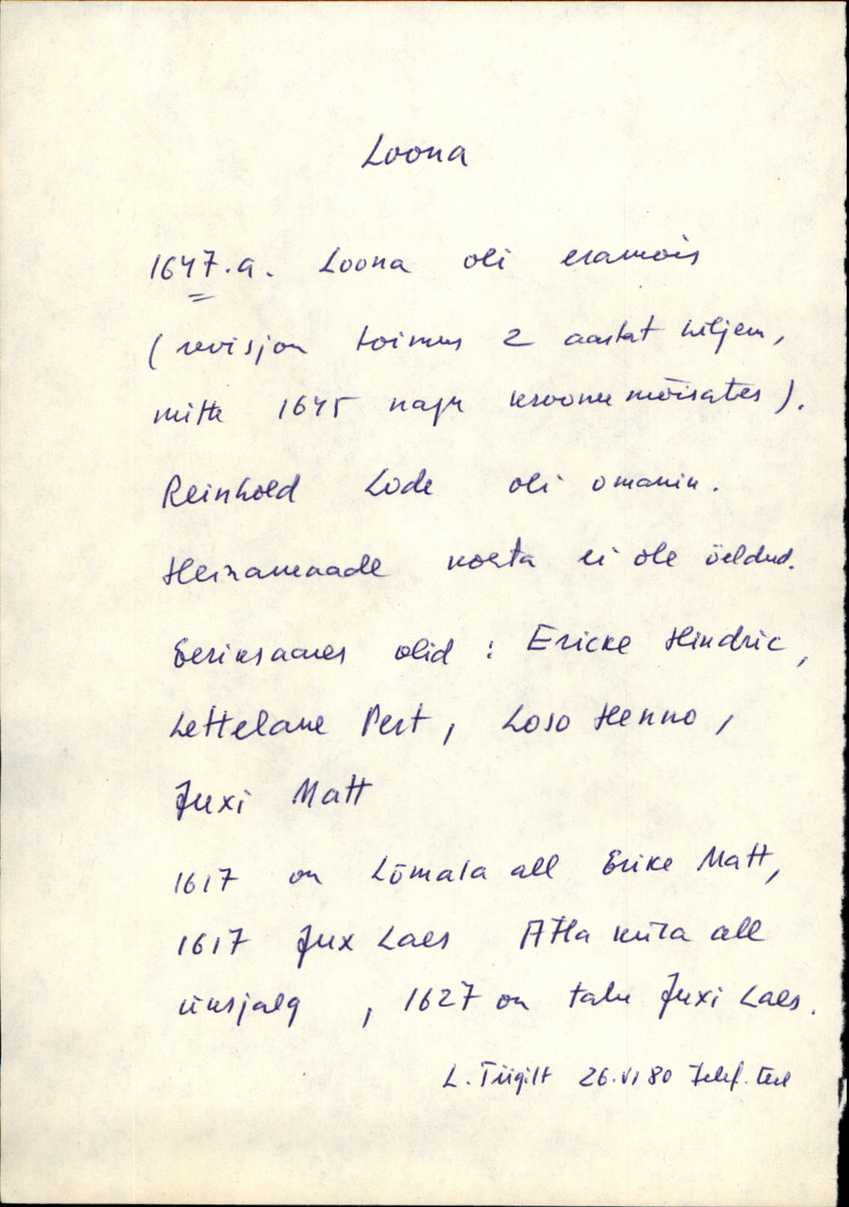 Loona
1647.a. Loona oli eramõis
(revisjon toimus 2 aastat hiljem,
mitte 1645 nagu kroonu mõisates).
Reinhold Lode oli omanik.
Heinamaade kohta ei ole öeldud.
Eeriksaares olid : Ericke Hindric,
Lettelane Pert, Loso Henno,
Juxi Matt
1617 on Lõmala all Erike Matt,
1617 Jux Laes Atla küla all
üksjalg , 1627 on talu Juxi Laes.
L. Tiigilt 26.VI 80 Telef. teel